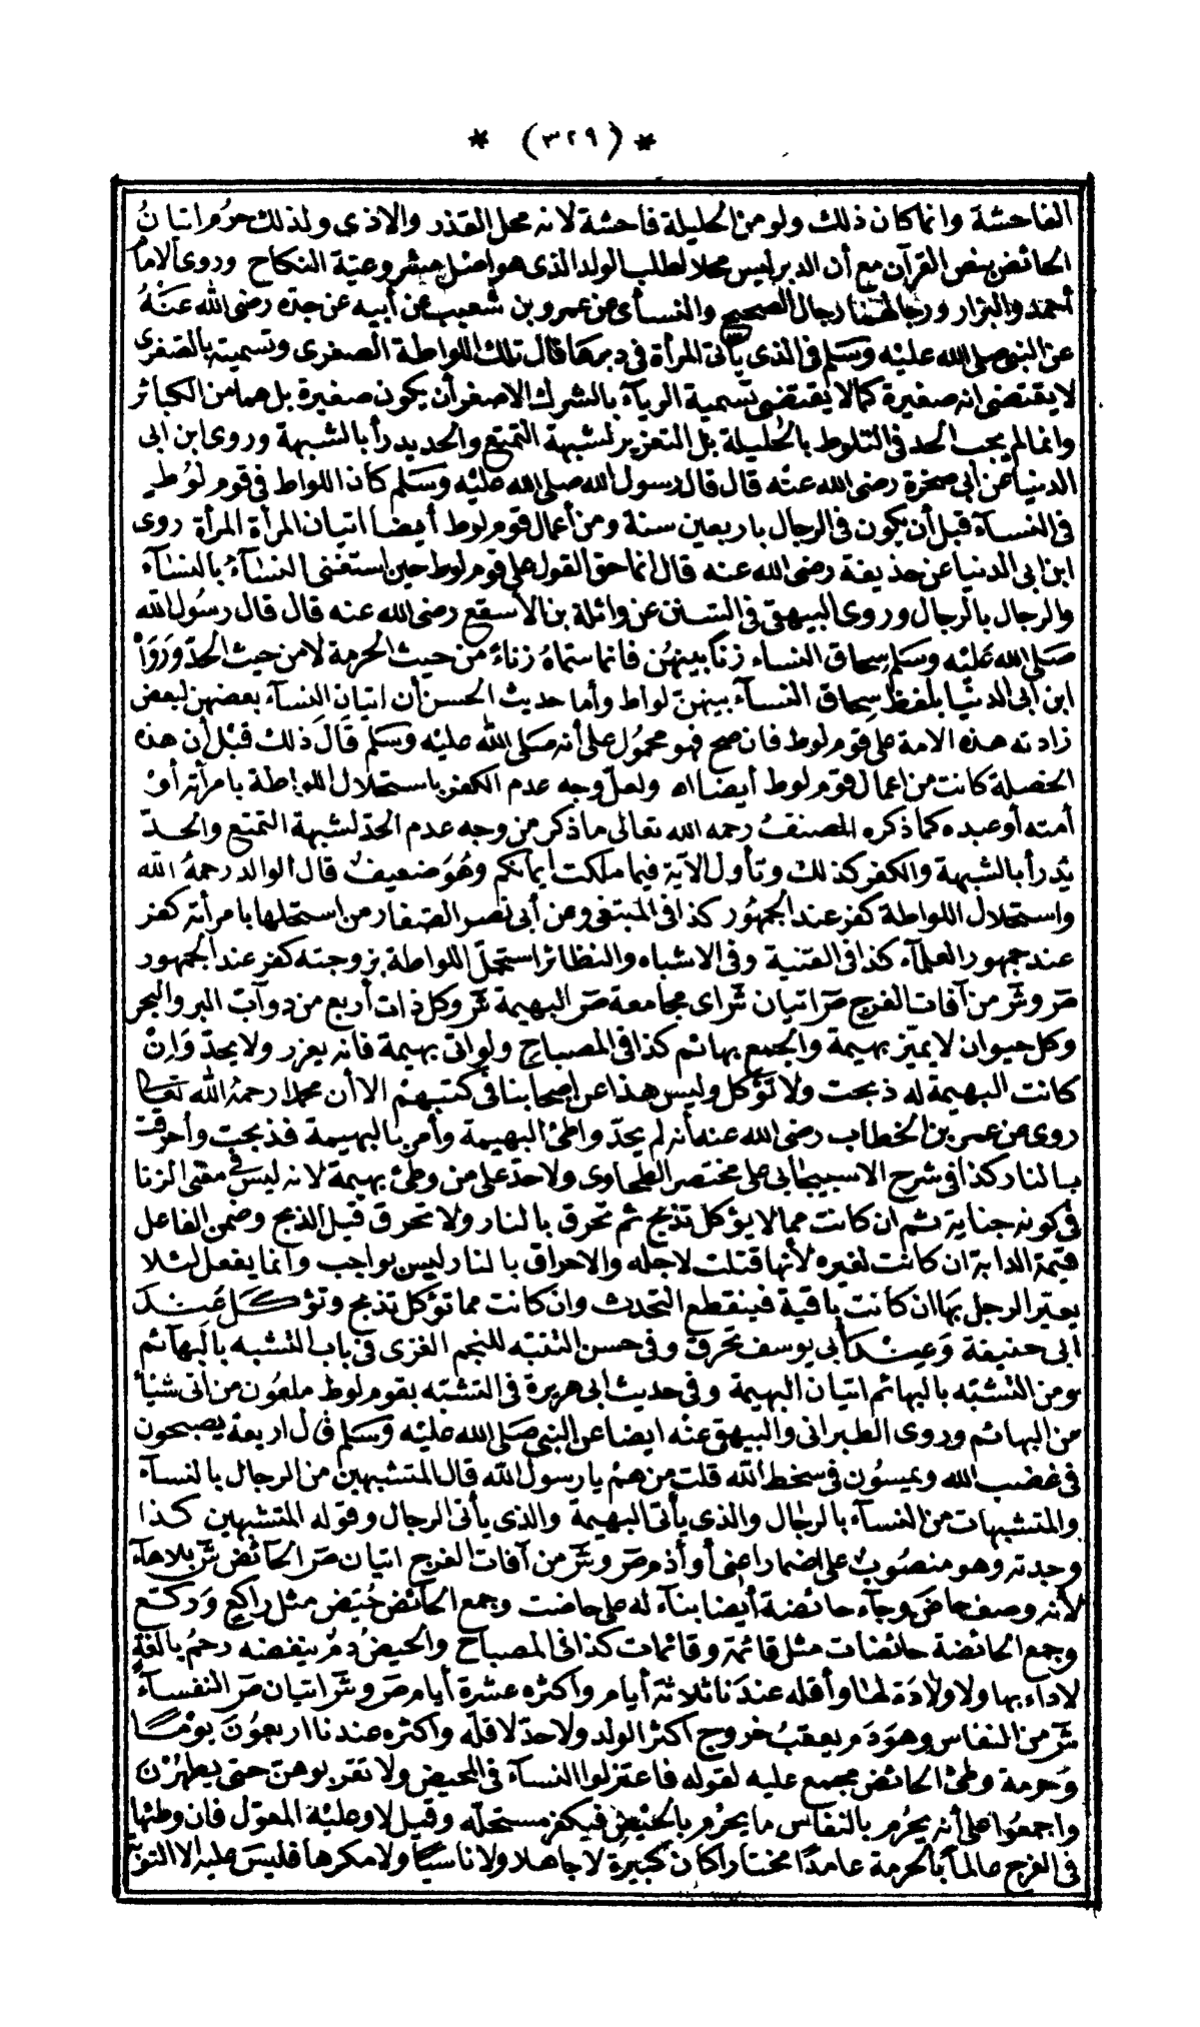 * (٣٢٩) *
الفاحشة وانما كان ذلك ولو من الحليلة فاحشة لانه محل القذر والاذى ولذلك حرم اتيان
الحائض بنص القرآن مع أن الدبر ليس محلا لطلب الولد الذى هو اصل مشروعية النكاح وروى الامام
أحمد والبزار ورجالهما رجال الصحيح والنسأى عن عمرو بن شعيب عن أبيه عن جده رضى الله عنه
عن النبى صلى الله عليه وسلم فى الذى يأتى المرأة فى دبرها قال تلك اللواطة الصغرى وتسميته بالصغرى
لا يقتضى انه صغيرة كما لا يقتضى تسمية الرياء بالشرك الاصغر أن يكون صغيرة بل هما من الكبائر
وانما لم يجب الحد فى التلوط بالحليلة بل التعزير لشبهة التمتع والحد يدرأ بالشبهة وروى ابن ابى
الدنيا عن أبى صخرة رضى الله عنه قال قال رسول الله صلى الله عليه وسلم كان اللواط فى قوم لوط
فى النسآء قبل أن يكون فى الرجال باربعين سنة ومن أعمال قوم لوط أيضا اتيان المرأة المرأة روى
ابن ابى الدنيا عن حذيفة رضى الله عنه قال انما حق القول على قوم لوط حين استغنى النسآء بالنسآء
والرجال بالرجال وروى البيهقى فى السنن عن واثلة بن الأسقع رضى الله عنه قال قال رسول الله
صلى الله عليه وسلم سحاق النساء زنا بينهن فانما سماه زناء من حيث الحرمة لا من حيث الحد ورواه
ابن ابى الدنيا بلفظ سحاق النسآء بينهن لواط وأما حديث الحسن أن اتيان النسآء بعضهن لبعض
زادته هذه الامة على قوم لوط فان صح فهو محمول على أنه صلى الله عليه وسلم قال ذلك قبل أن هذه
الخصلة كانت من اعمال قوم لوط أيضا اه ولعل وجه عدم الكفر باستحلال اللواطة بامرأته أو
أمته أو عبده كما ذكره المصنف رحمه الله تعالى ما ذكر من وجه عدم الحد لشبهة التمتع والحد
يدرأ بالشبهة والكفر كذلك وتأول الآية فيما ملكت أيمانكم وهو ضعيف قال الوالد رحمه الله
واستحلال اللواطة كفر عند الجمهور كذا فى المبتغى وعن أبى نصر الصفار من استحلها بامرأته كفر
عند جمهور العلمآء كذا فى القنية وفى الاشباه والنظائر استحل اللواطة بزوجته كفر عند الجمهور
صر وثر من آفات الفرج صر اتيان ثر اى مجامعة صر البهيمة ثر وكل ذات أربع من دوآب البر والبحر
وكل حيوان لا يميز بهيمة والجمع بهائم كذا فى المصباح ولو اتى بهيمة فانه يعزر ولا يحد وان
كانت البهيمة له ذبحت ولا تؤكل وليس هذا عن اصحابنا فى كتبهم الا أن محمدا رحمه الله تعالى
روى عن عمر بن الخطاب رضى الله عنه أنه لم يحد واطئ البهيمة وأمر بالبهيمة فذبحت وأحرقت
بالنار كذا فى شرح الاسبيجابى على مختصر الطحاوى ولا حد على من وطئ بهيمة لانه ليس فى معنى الزنا
فى كونه جناية ثم ان كانت مما لا يؤكل تذبح ثم تحرق بالنار ولا تحرق قبل الذبح وضمن الفاعل
قيمة الدابة ان كانت لغيره لأنها قتلت لاجله والاحراق بالنار ليس بواجب وانما يفعل لئلا
يعير الرجل بها ان كانت باقية فينقطع التحدث وان كانت مما تؤكل تذبح وتؤكل عند
ابى حنيفة وعند أبى يوسف تحرق وفى حسن التنبه للنجم الغزى فى باب التشبه بالبهآئم
ومن التشبه بالبهائم اتيان البهيمة وفى حديث ابى هريرة فى التشبه بقوم لوط ملعون من اتى شيئا
من البهائم وروى الطبرانى والبيهقى عنه ايضا عن النبى صلى الله عليه وسلم قال اربعة يصبحون
فى غضب الله ويمسون فى سخط الله قلت من هم يا رسول الله قال المتشبهين من الرجال بالنسآء
والمتشبهات من النسآء بالرجال والذى يأتى البهيمة والذى يأتى الرجال وقوله المتشبهين كذا
وجدته وهو منصوب على اضمار اعنى أو أذم صر وثر من آفات الفرج اتيان صر الحائض ثر بلا هآء
لأنه وصف خاص وجآء حائضة أيضا بنآء له على حاضت وجمع الحآئض حيض مثل راكع وركع
وجمع الحائضة حائضات مثل قائمة وقائمات كذا فى المصباح والحيض دم ينفضه رحم بالغة
لا داء بها ولا ولادة لها وأقله عندنا ثلاثة أيام واكثره عشرة أيام صر وثر اتيان صر النفسآء
ثر من النفاس وهو دم يعقب خروج اكثر الولد ولا حد لاقله واكثره عندنا اربعون يوما
وحرمة وطئ الحائض مجمع عليه لقوله فاعتزلوا النسآء فى المحيض ولا تقربوهن حتى يطهرن
واجمعوا على أنه يحرم بالنفاس ما يحرم بالحيض فيكفر مستحله وقيل لا وعليه المعول فان وطئها
فى الفرج عالما بالحرمة عامدا مختارا كان كبيرة لا جاهلا ولا ناسيا ولا مكرها فليس عليه الا التوبة